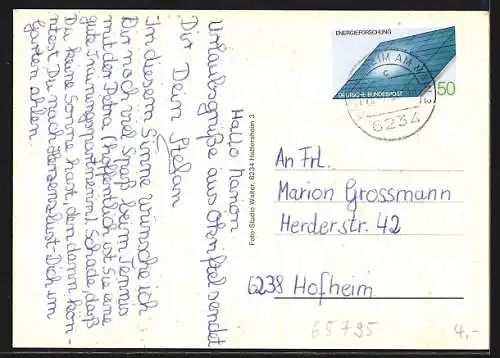 Hallo Marion
Urlaubsgrüße aus Okriftel sendet
Dir Dein Stefan
In diesem Sinne wünsche ich
Dir noch viel Spaß beim Tennis
mit der Petra (hoffentlich ist sie eine
gute Trainingspartnerin). Schade, daß
Du keine Sonne hast, denn dann kön-
ntest Du nach Herzenslust Dich im
Garten ahlen.
Foto-Studio Walter, 6234 Hattersheim 3
ENERGIEFORSCHUNG
DEUTSCHE BUNDESPOST
50
HEIM AM MAIN 3
6234
An Frl.
Marion Grossmann
Herderstr. 42
6238 Hofheim
65795
4,-